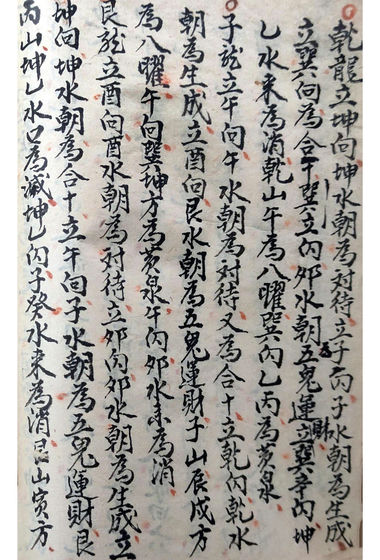 乾龍立坤向坤水朝為對待立子向子水朝為生成
立巽向為合十巽立向卯水朝為五鬼運財立巽辛向坤
乙水来為消乾山午為八曜巽向乙丙為黄泉
子龍立午向午水朝為對待又為合十立乾向乾水
朝為生成立酉向艮水朝為五鬼運財子山辰戌方
為八曜午向巽坤方為黄泉午向卯水来為消
艮龍立酉向酉水朝為對待立卯向卯水朝為生成立
坤向坤水朝為合十立午向子水朝為五鬼運財艮
丙山坤乙水口為滅坤乙向子癸水来為消艮山寅方